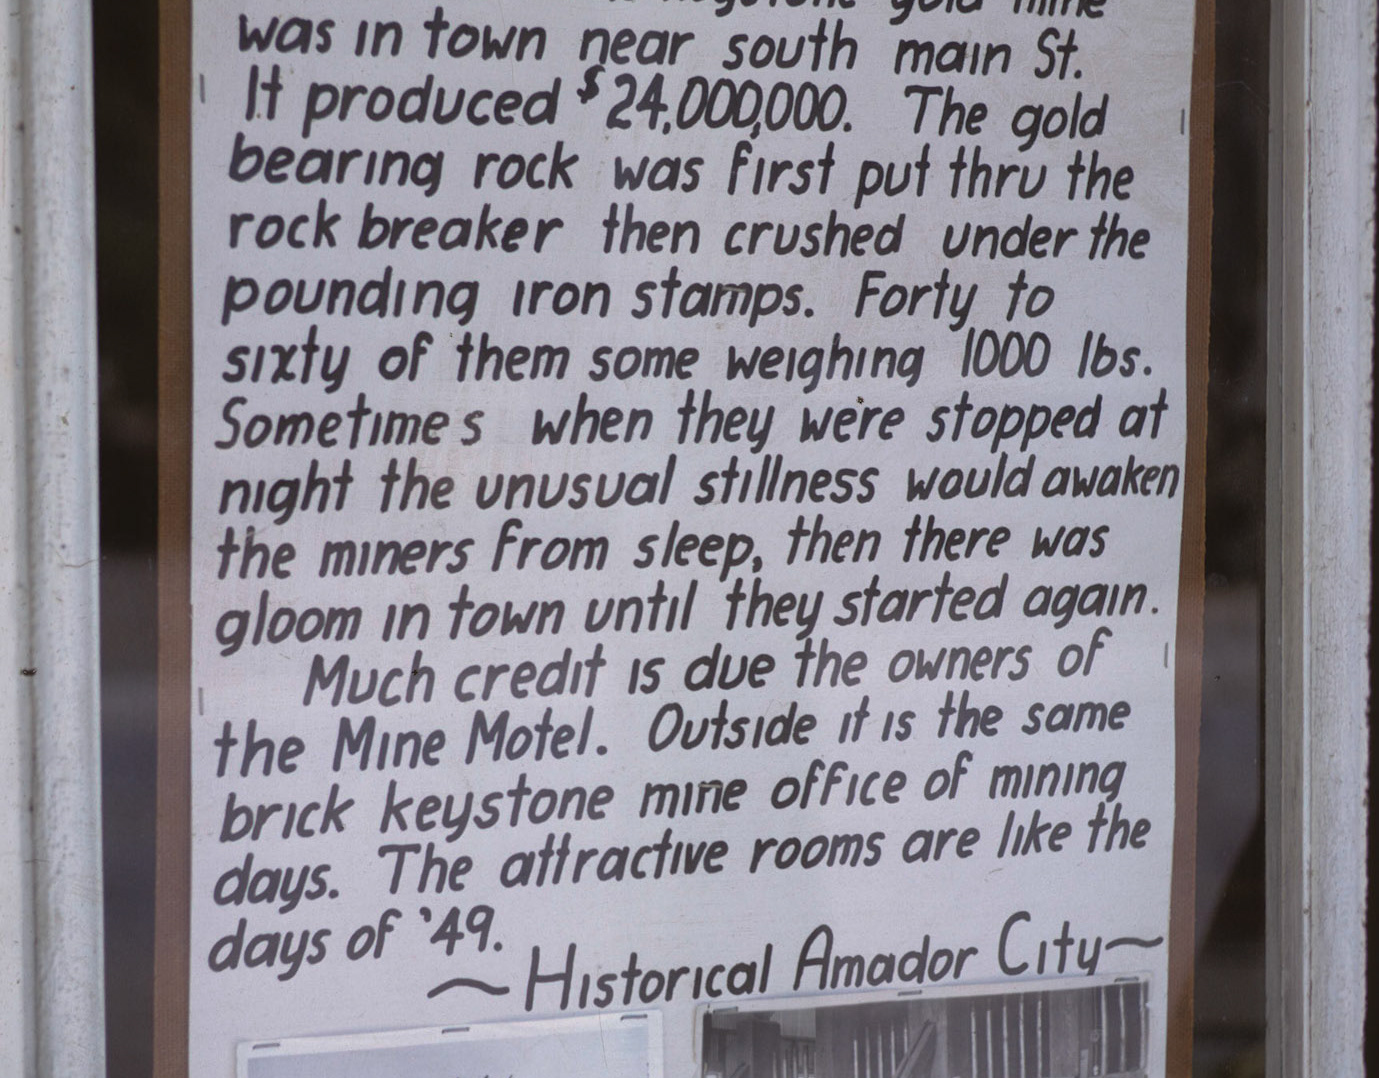 keystone gold mine
was in town near south main St.
It produced $24,000,000. The gold
bearing rock was first put thru the
rock breaker then crushed under the
pounding iron stamps. Forty to
sixty of them some weighing 1000 lbs.
Sometimes when they were stopped at
night the unusual stillness would awaken
the miners from sleep, then there was
gloom in town until they started again.
Much credit is due the owners of
the Mine Motel. Outside it is the same
brick keystone mine office of mining
days. The attractive rooms are like the
days of '49.
~Historical Amador City~